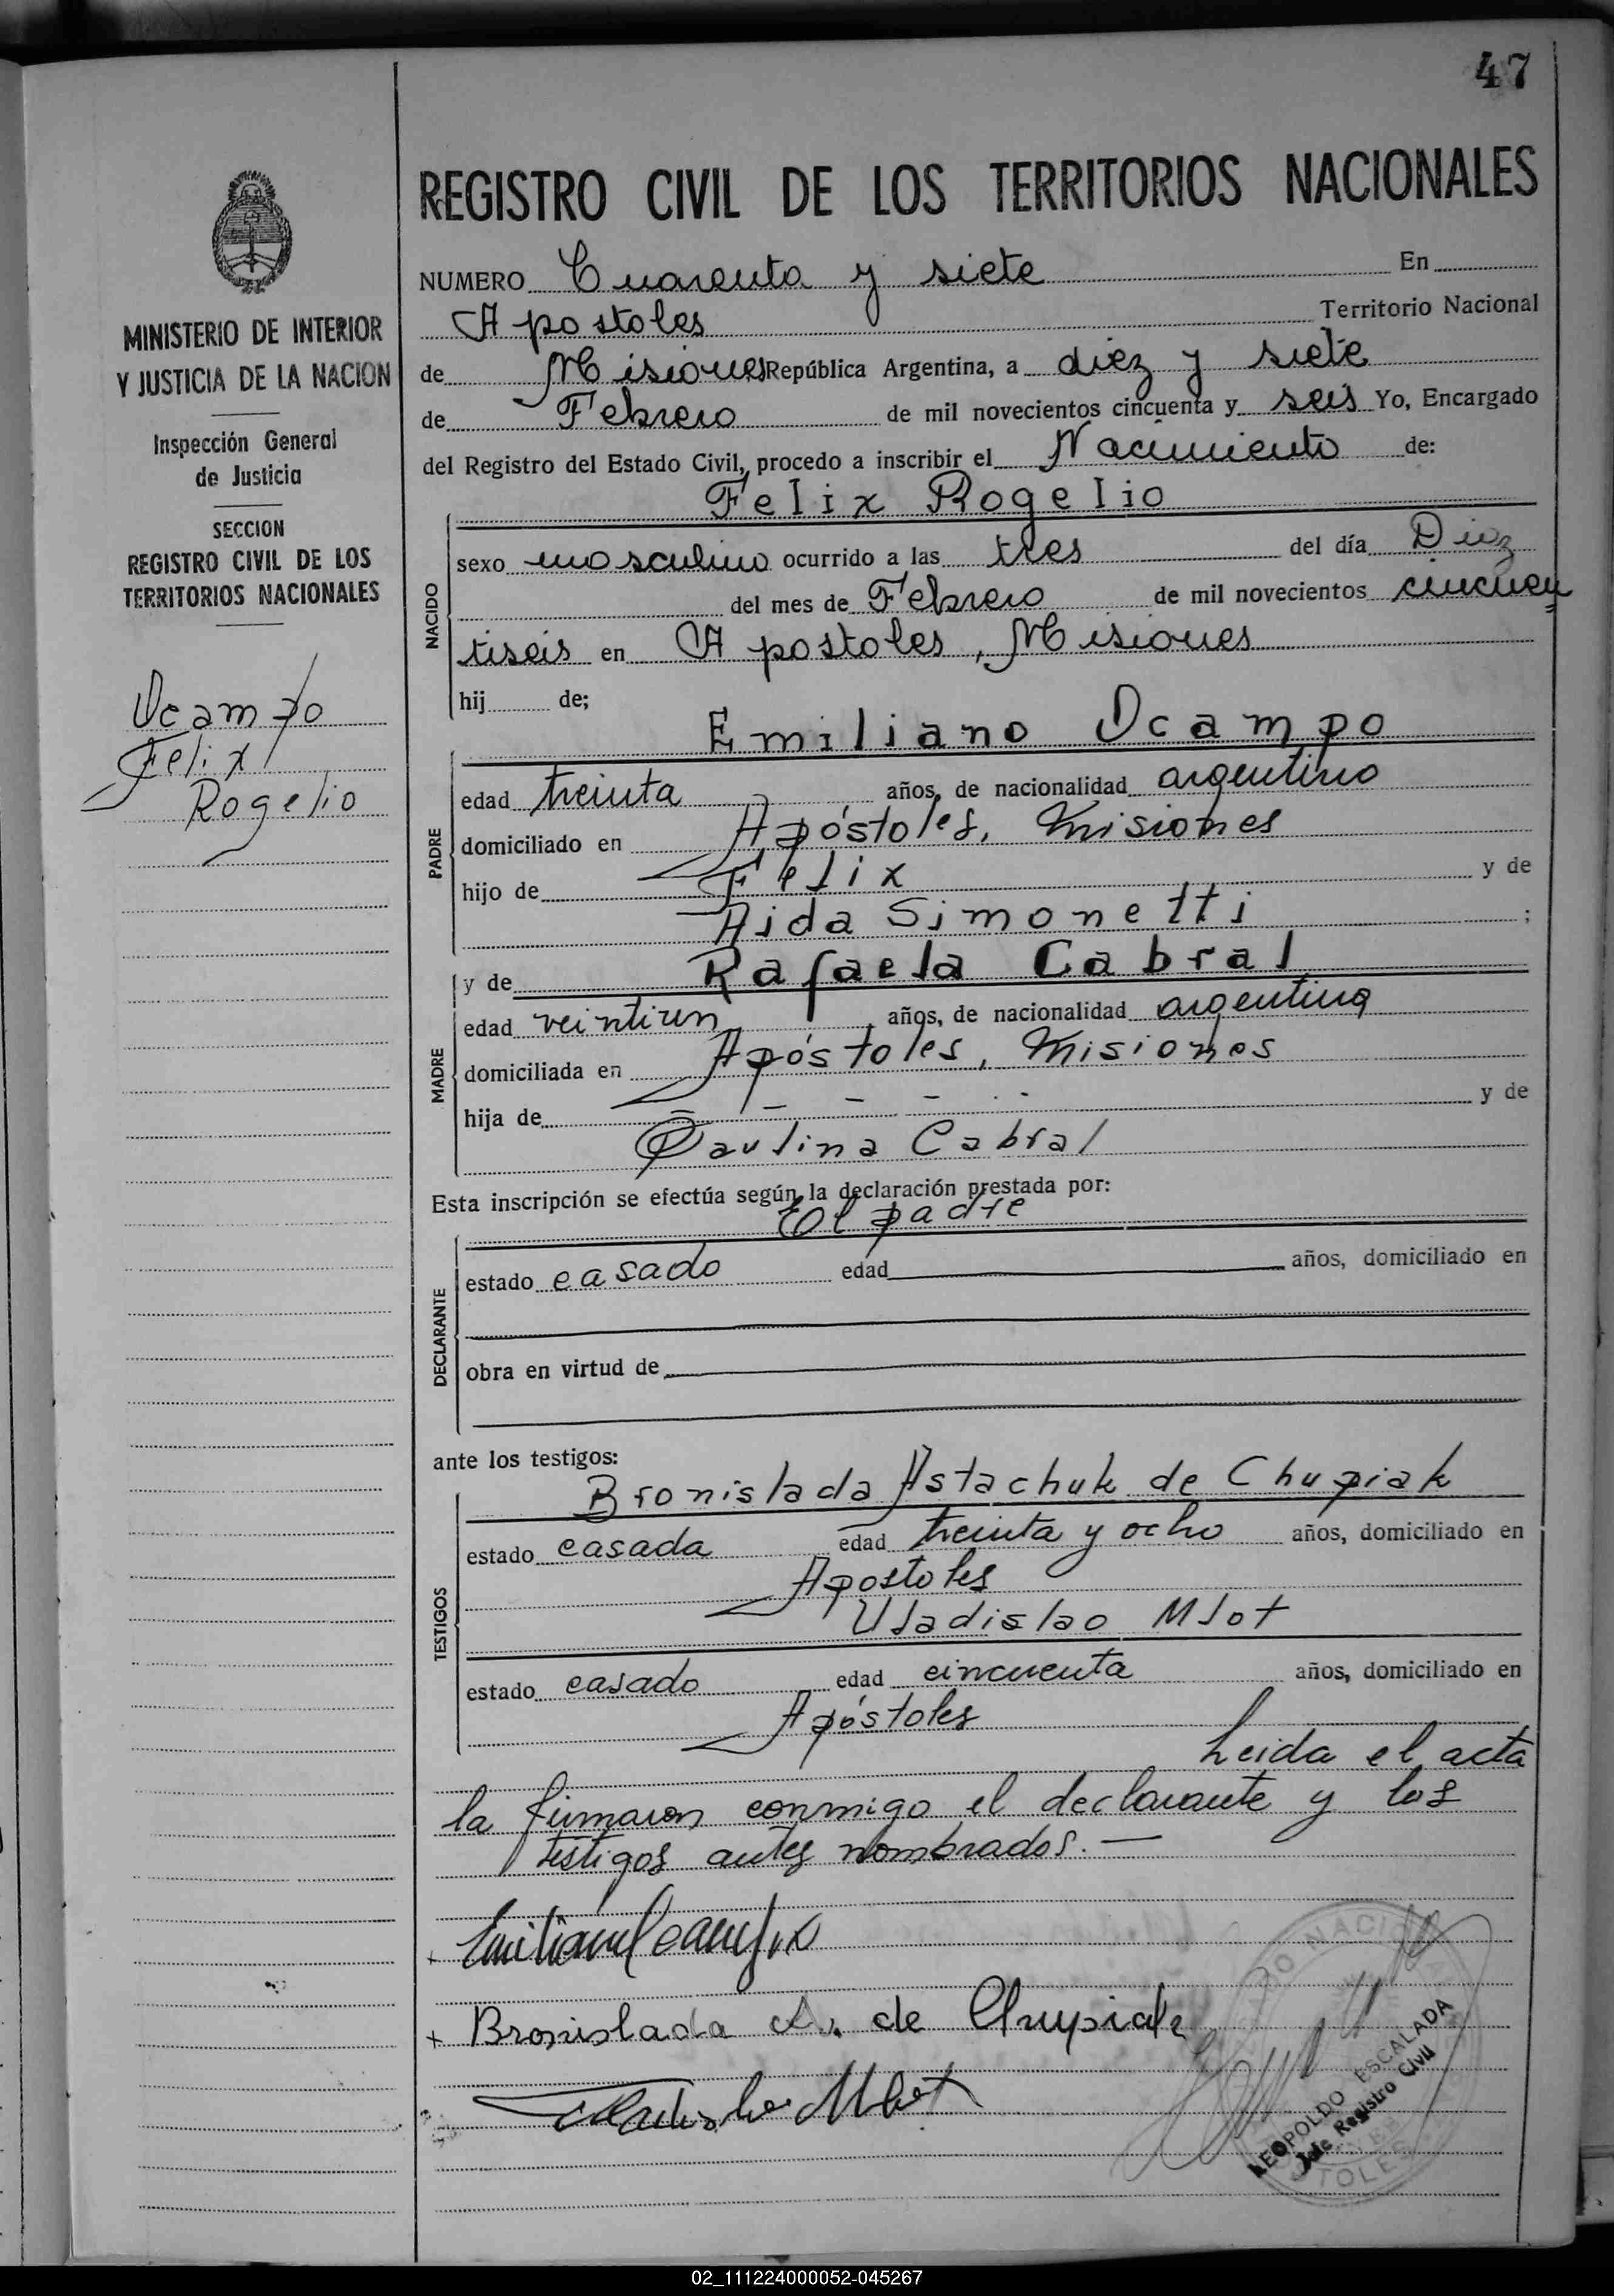 47
MINISTERIO DE INTERIOR
Y JUSTICIA DE LA NACION
Inspección General
de Justicia
SECCION
REGISTRO CIVIL DE LOS
TERRITORIOS NACIONALES
Ocampo
Felix
Rogelio
REGISTRO CIVIL DE LOS TERRITORIOS NACIONALES
NUMERO Cuarenta y siete En
Apostoles Territorio Nacional
de Misiones República Argentina, a diez y siete
de Febrero de mil novecientos cincuenta y seis Yo, Encargado
del Registro del Estado Civil, procedo a inscribir el Nacimiento de:
Felix Rogelio
NACIDO
sexo masculino ocurrido a las tres del día Diez
del mes de Febrero de mil novecientos cincuen
tiseis en Apostoles, Misiones
hij de;
Emiliano Ocampo
PADRE
edad treinta años, de nacionalidad argentino
domiciliado en Apóstoles, Misiones
hijo de Felix y de
Aida Simonetti ;
y de Rafaela Cabral
MADRE
edad veintiun años, de nacionalidad argentina
domiciliada en Apóstoles, Misiones
hija de - - - - - y de
Paulina Cabral
Esta inscripción se efectúa según la declaración prestada por:
El padre
DECLARANTE
estado casado edad años, domiciliado en
obra en virtud de
ante los testigos:
Bronislada Astachuk de Chupiak
TESTIGOS
estado casada edad treinta y ocho años, domiciliado en
Apostoles
Uladislao Mlot
estado casado edad cincuenta años, domiciliado en
Apóstoles
Leida el acta
la firmaron conmigo el declarante y los
testigos antes nombrados. —
Emiliano Ocampo
Bronislada A. de Chupiak
Uladislao Mlot
LEOPOLDO ESCALADA
Jefe Registro Civil
02_111224000052-045267